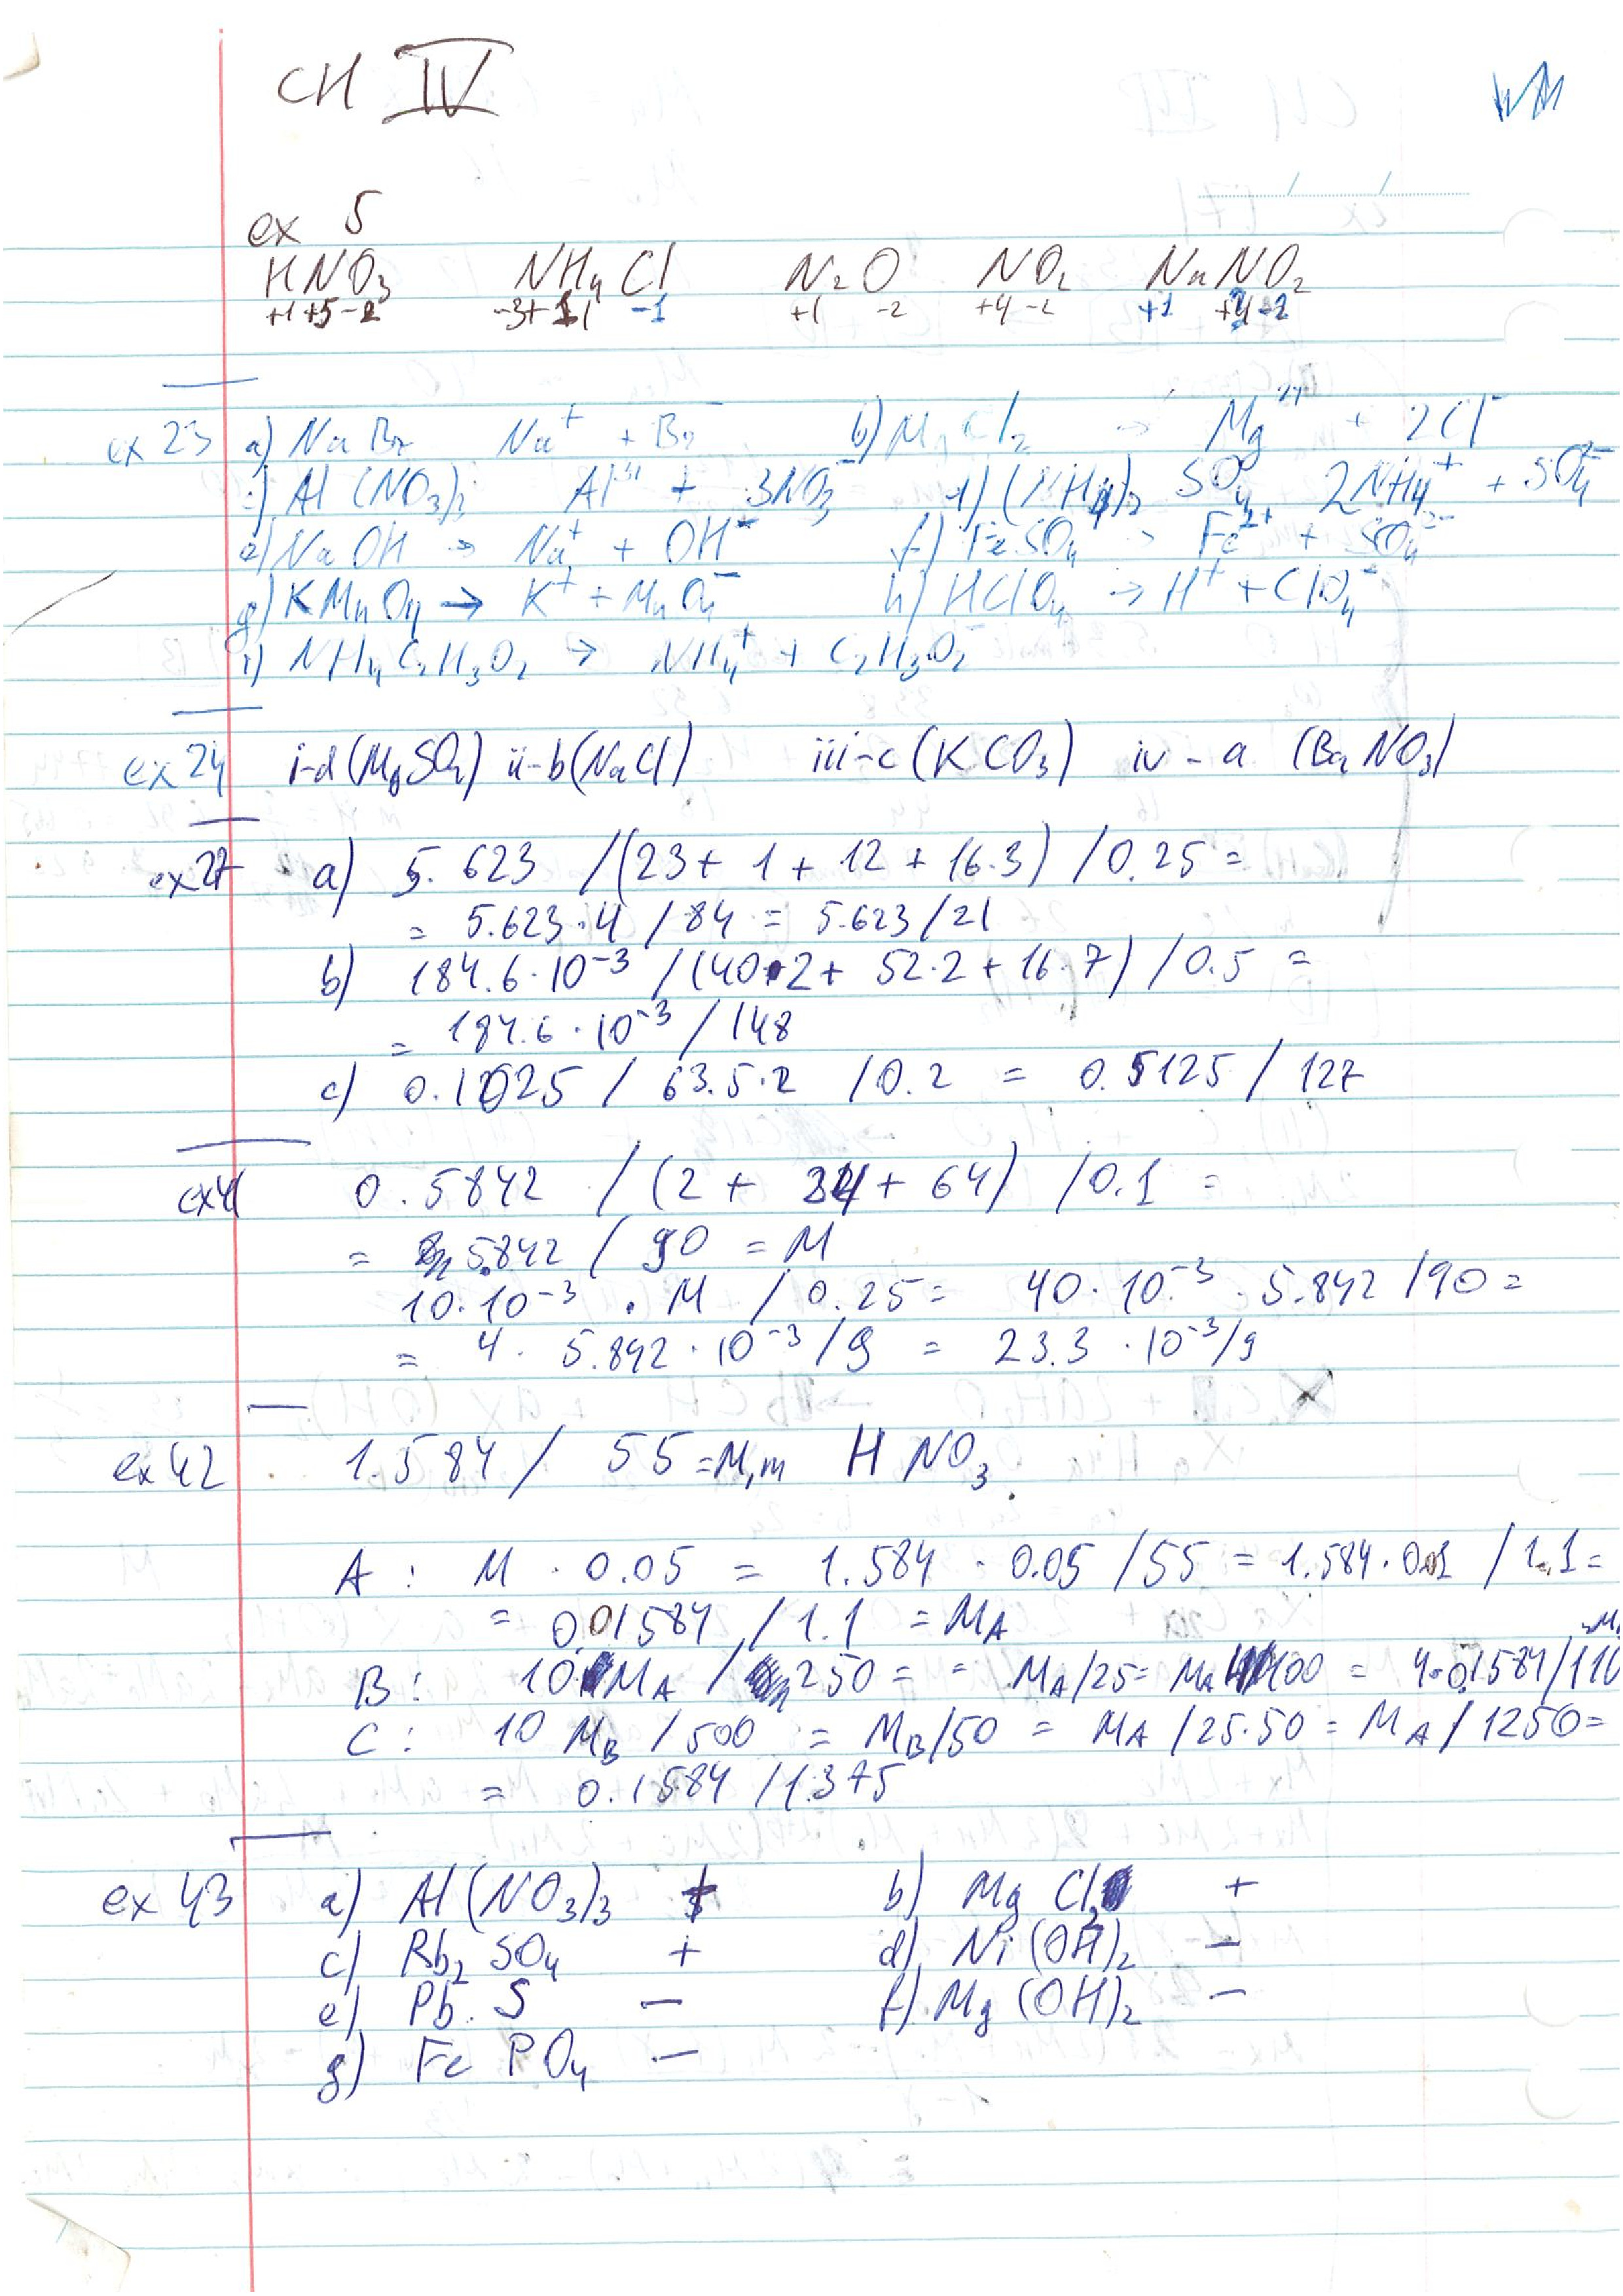 CH IV
ex 5
HNO₃ NH₄Cl N₂O NO₂ NaNO₂
+1+5-2 -3+1 -1 +1 -2 +4-2 +1 -2
ex 23 a) NaBr Na⁺ + Br⁻ b) MgCl₂ → Mg²⁺ + 2Cl⁻
c) Al(NO₃)₃ Al³⁺ + 3NO₃⁻ d) (NH₄)₂SO₄ 2NH₄⁺ + SO₄²⁻
e) NaOH → Na⁺ + OH⁻ f) FeSO₄ → Fe²⁺ + SO₄²⁻
g) KMnO₄ → K⁺ + MnO₄⁻ h) HClO₄ → H⁺ + ClO₄⁻
i) NH₄C₂H₃O₂ → NH₄⁺ + C₂H₃O₂⁻
ex 24 i-d (MgSO₄) ii-b (NaCl) iii-c (KCO₃) iv - a (BaNO₃)
ex 27 a) 5.623 / (23 + 1 + 12 + 16·3) / 0.25 =
= 5.623·4 / 84 = 5.623/21
b) 184.6·10⁻³ / (40·2 + 52·2 + 16·7) / 0.5 =
= 184.6·10⁻³ / 148
c) 0.1025 / 63.5·2 / 0.2 = 0.5125 / 127
ex 41 0.5842 / (2 + 24 + 64) / 0.1 =
= 5.842 / 90 = M
10·10⁻³ · M / 0.25 = 40·10⁻³ · 5.842 / 90 =
= 4 · 5.842 · 10⁻³ / 9 = 23.3 · 10⁻³/9
ex 42 1.584 / 55 = M, m HNO₃
A : M · 0.05 = 1.584 · 0.05 / 55 = 1.584 · 0.01 / 1.1 =
= 0.01584 / 1.1 = M_A
B : 10 M_A / 250 = = M_A/25 = M_A 4/100 = 4·0.01584/110
C : 10 M_B / 500 = M_B/50 = M_A / 25·50 = M_A / 1250 =
= 0.1584 / 1375
ex 43 a) Al(NO₃)₃ + b) MgCl₂ +
c) Rb₂SO₄ + d) Ni(OH)₂ −
e) PbS − f) Mg(OH)₂ −
g) FePO₄ −